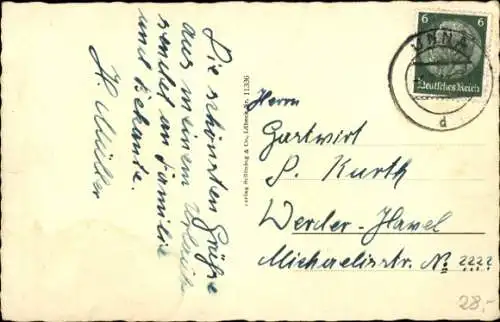 Die schönsten Grüße
aus meinem Urlaub
sendet an Familie
und Bekannte.
H. Müller
Verlag Schöning & Co., Lübeck Nr. 11336
6 6
Deutsches Reich
UNNA
d
Herrn
Gastwirt
P. Kurth
Werder-Havel
Michaelisstr. No ????
28,-